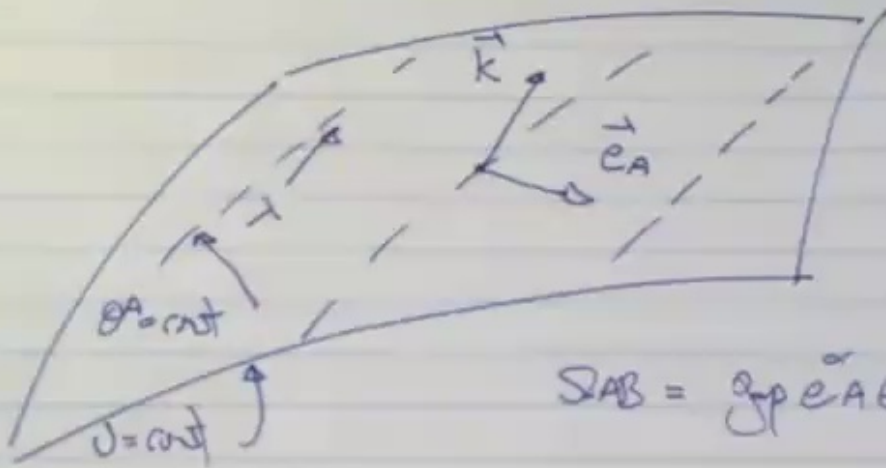 k⃗
e⃗_A
λ
θ^A=const
v=const
Ω_AB = g_αβ e^α_A e